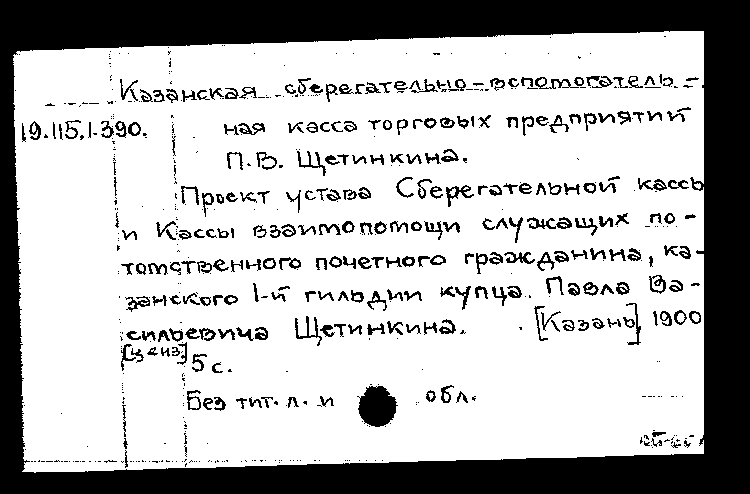 Казанская сберегательно-вспомогатель-
19.115.1.390. ная касса торговых предприятий
П.В. Щетинкина.
Проект устава Сберегательной кассы
и Кассы взаимопомощи служащих по-
томственного почетного гражданина, ка-
занского 1-й гильдии купца Павла Ва-
сильевича Щетинкина. [Казань], 1900
[ценз.] 5 с.
Без тит. л. и обл.